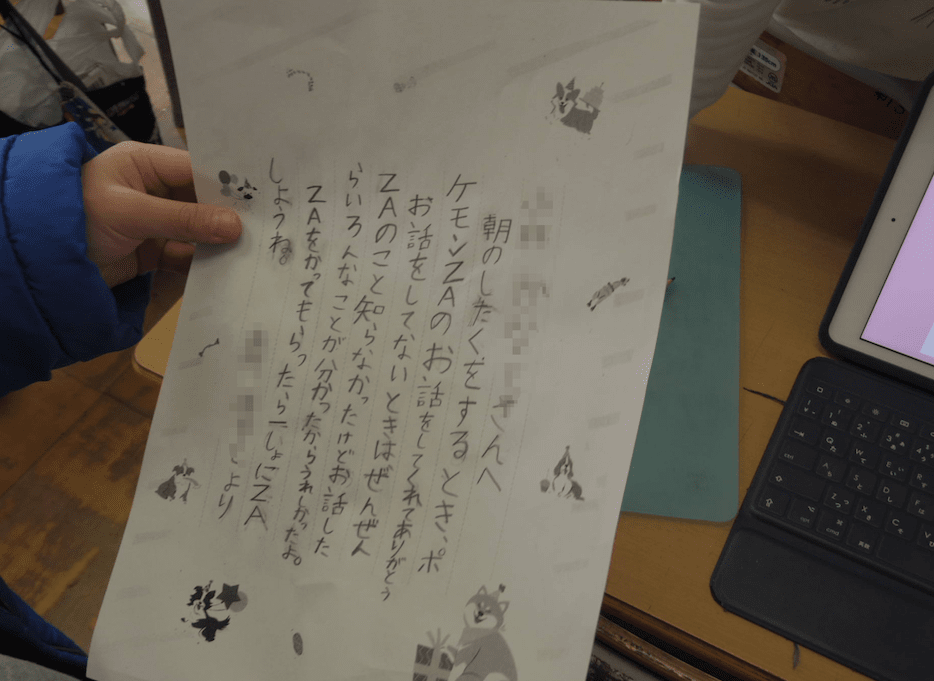 さんへ
朝のしたくをするとき、ポ
ケモンZAのお話をしてくれてありがとう
お話をしてないときはぜんぜん
ZAのこと知らなかったけどお話した
らいろんなことが分かったからうれしかったよ。
ZAをかってもらったら一しょにZA
しようね。
より